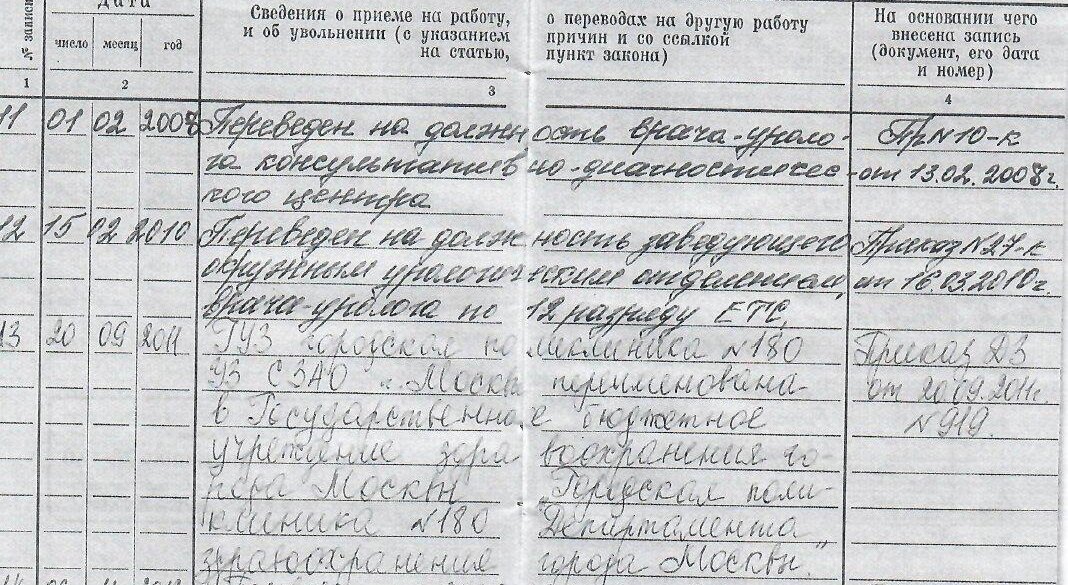 № записи
Дата
Сведения о приеме на работу, о переводах на другую работу
и об увольнении (с указанием причин и со ссылкой
на статью, пункт закона)
На основании чего
внесена запись
(документ, его дата
и номер)
число месяц год
1 2 3 4
11 01 02 2008 Переведен на должность врача-уроло- Пр N10-к
га консультативно-диагностичес- от 13.02.2008г.
кого центра
12 15 02 2010 Переведен на должность заведующего Приказ N27-к
окружным урологическим отделением, от 16.03.2010г.
врача-уролога по 12 разряду ЕТС.
13 20 09 2011 ГУЗ городская поликлиника N180 Приказ ДЗ
УЗ СЗАО г. Москвы переименована от 20.09.2011г.
в Государственное бюджетное N919.
учреждение здравоохранения го-
рода Москвы "Городская поли-
клиника N180 Департамента
здравоохранения города Москвы"